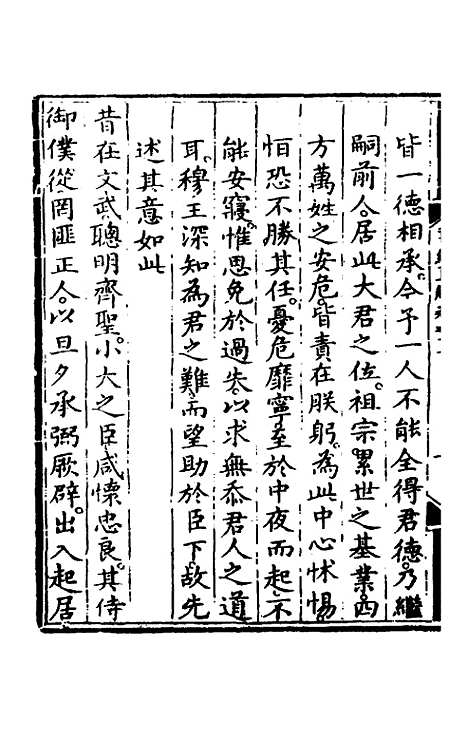 皆一德相承。今予一人不能全得君德。乃繼
嗣前人。居此大君之位。祖宗累世之基業。四
方萬姓之安危。皆責在朕躬。為此中心怵惕。
恒恐不勝其任。憂危靡寧。至於中夜而起。不
能安寢。惟思免於過失。以求無忝君人之道
耳。穆王深知為君之難。而望助於臣下。故先
述其意如此
昔在文武聰明齊聖。小大之臣咸懷忠良。其侍
御僕從罔匪正人。以旦夕承弼厥辟。出入起居